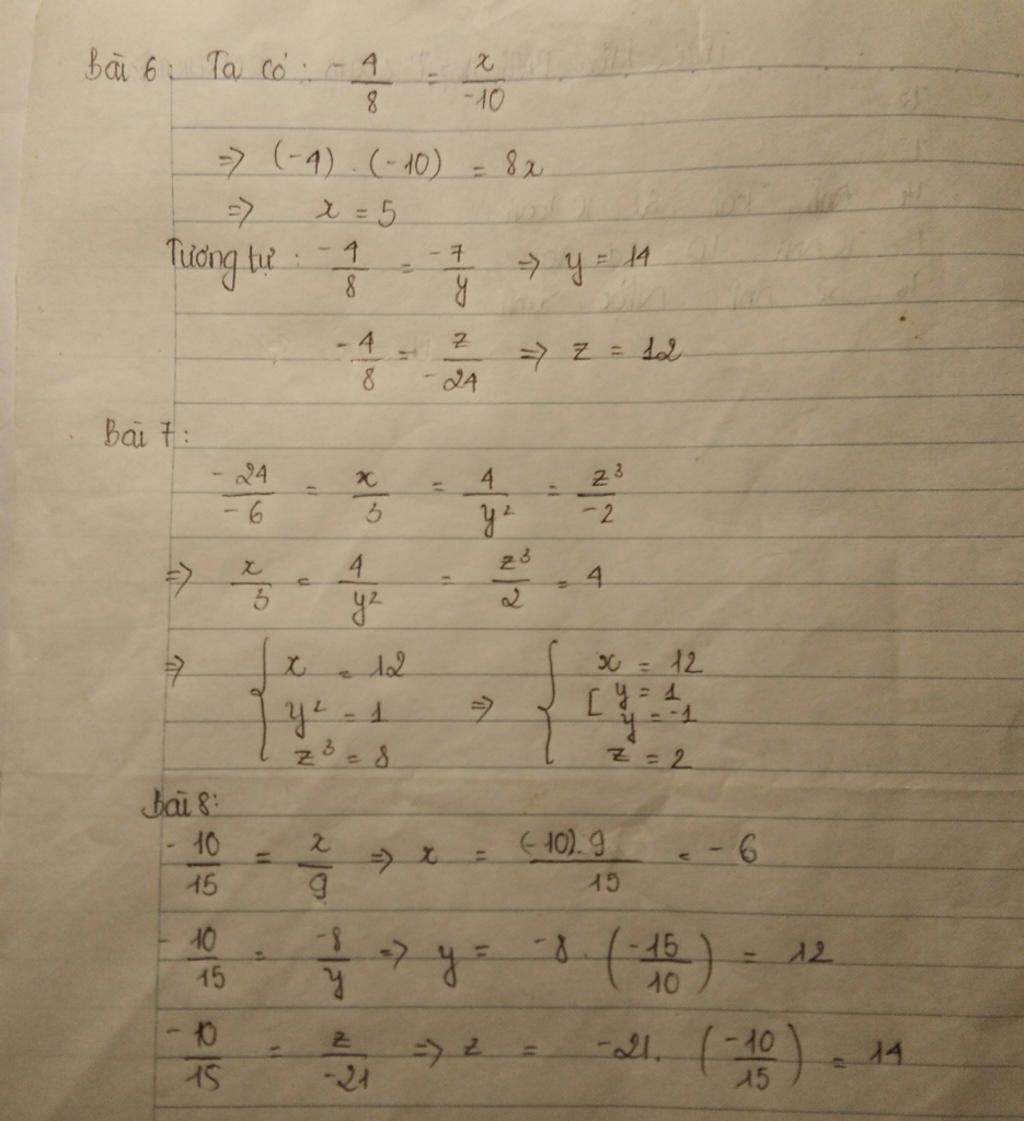 Bài 6: Ta có: -4/8 = x/-10
=> (-4) . (-10) = 8x
=> x = 5
Tương tự: -4/8 = -7/y => y = 14
-4/8 = z/-24 => z = 12
Bài 7:
-24/-6 = x/3 = 4/y² = z³/-2
=> x/3 = 4/y² = z³/2 = 4
=> { x = 12 ; y² = 1 ; z³ = 8 => { x = 12 ; [ y = 1 ; y = -1 ; z = 2
Bài 8:
-10/15 = x/9 => x = (-10).9/15 = -6
-10/15 = -8/y => y = -8 . (-15/10) = 12
-10/15 = z/-21 => z = -21. (-10/15) = 14